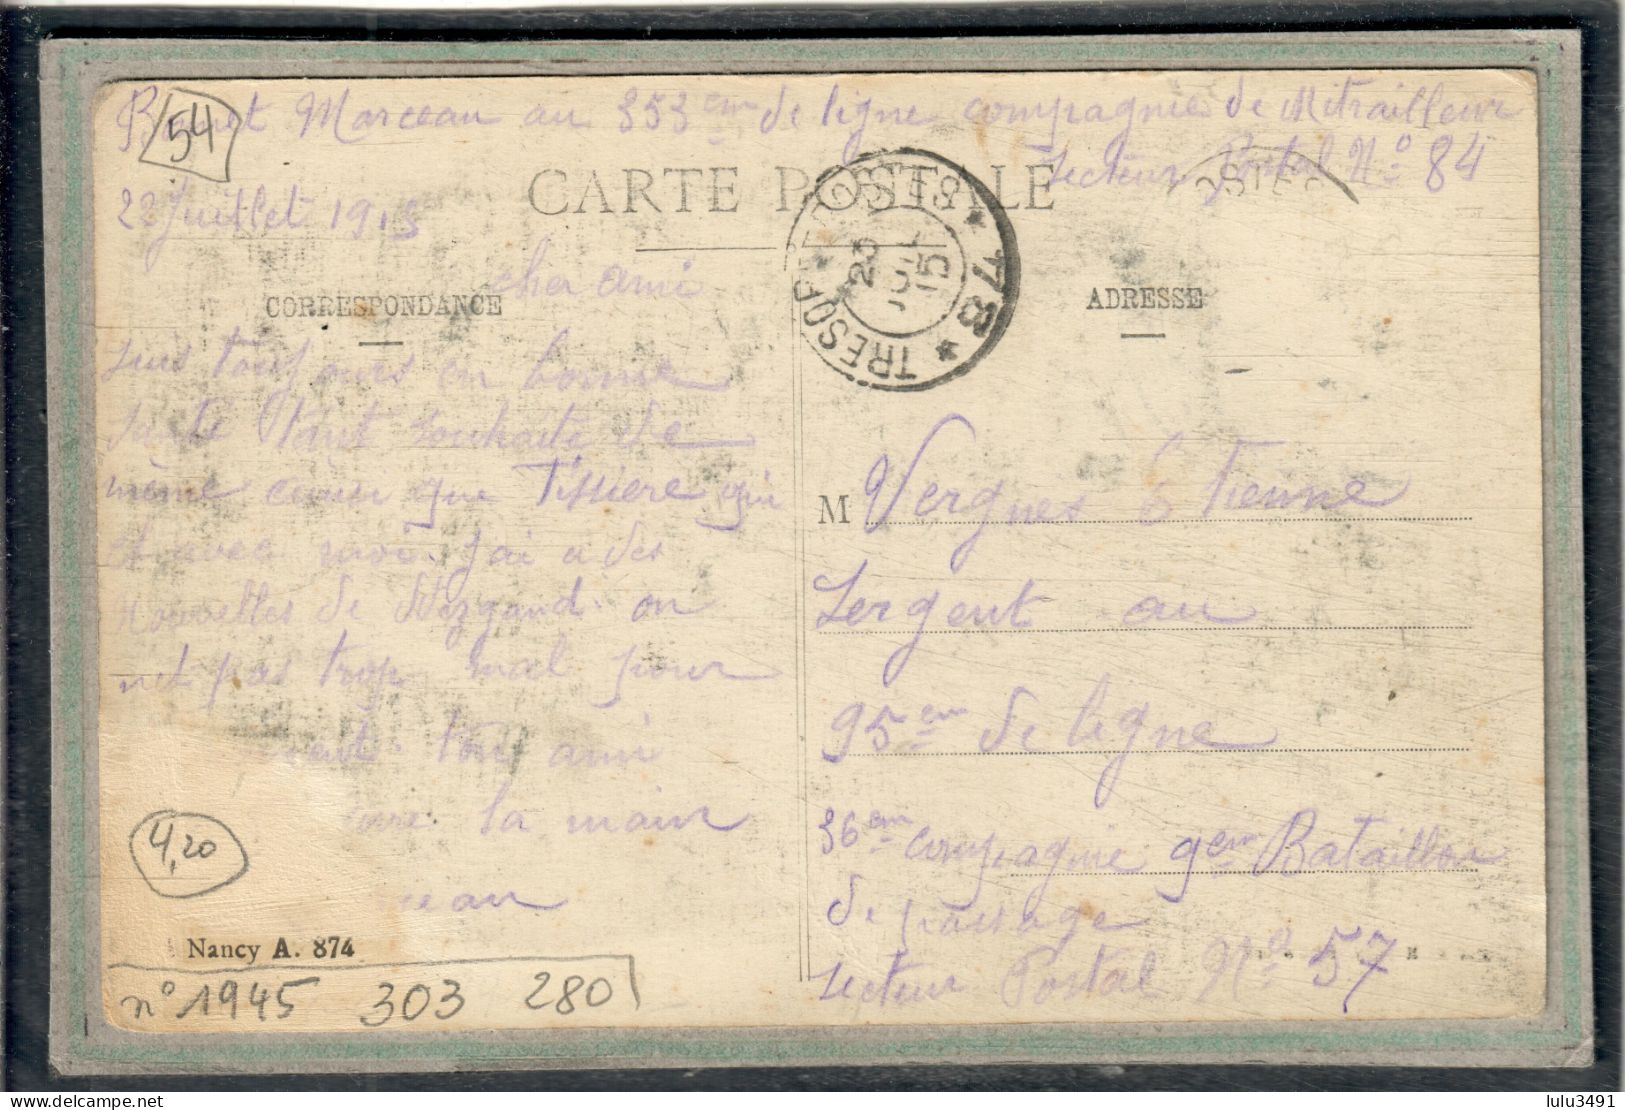 54
Marceau au 353em de ligne compagnie de Mitrailleur
Secteur Postal No 84
CARTE POSTALE
22 Juillet 1915
TRESOR ET POSTES
23
JUIL
15
* 84 *
cher ami
CORRESPONDANCE
ADRESSE
suis toujours en bonne
santé tant souhaite de
même ainsi que Tissiere qui
et avec moi. J'ai a des
Nouvelles de on
net pas trop mal pour
ton ami
la main
ceau
M Vergnes Etienne
Sergent au
95em de ligne
36em compagnie 9em Bataillon
de passage
Secteur Postal No 57
4,20
Nancy A. 874
n° 1945 303 280
delcampe.net
lulu3491